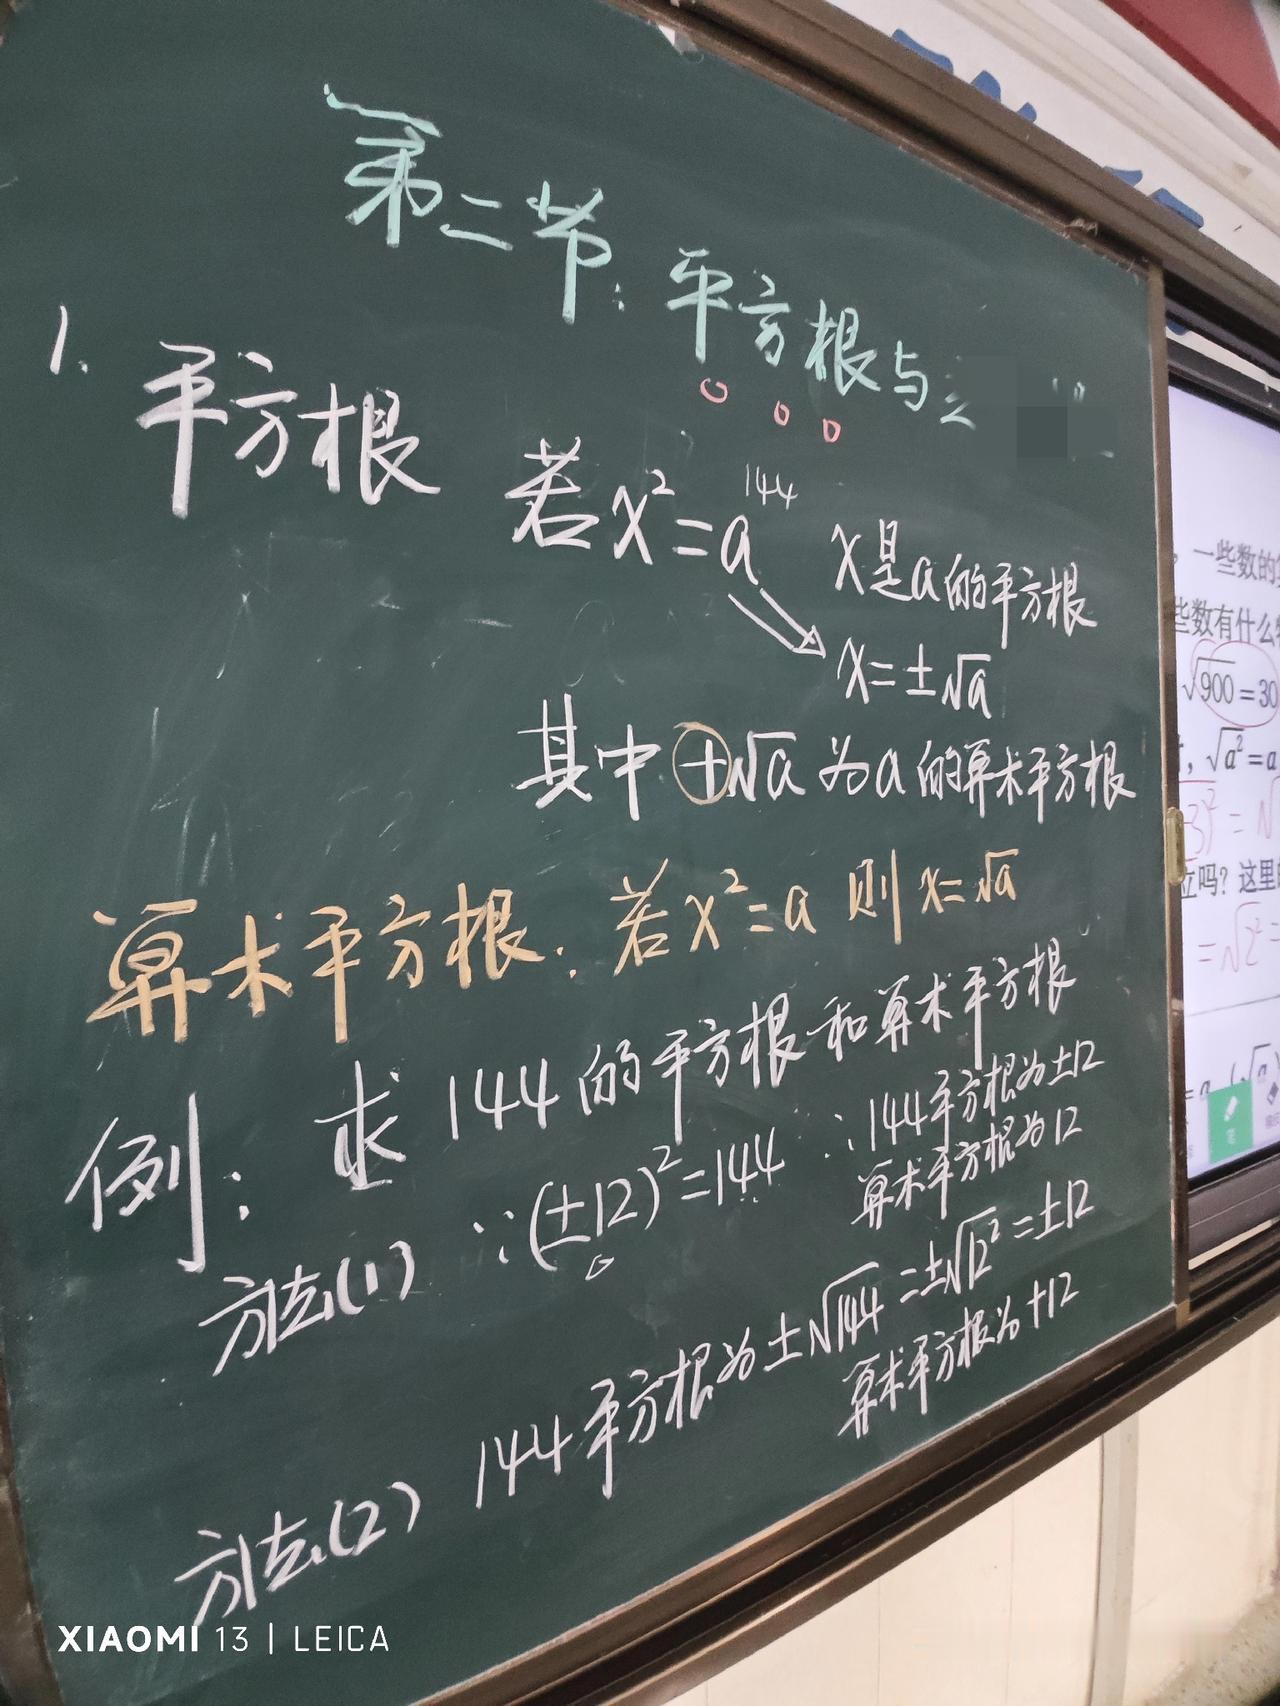 第二节：平方根与立
1. 平方根
若x²=a
144
x是a的平方根
x=±√a
其中+√a为a的算术平方根
算术平方根：若x²=a 则 x=√a
例：求144的平方根和算术平方根
方法(1) ∵(±12)²=144 ∴144平方根为±12
算术平方根为12
方法(2) 144平方根为±√144=±√12²=±12
算术平方根为+12
一些数的
些数有什么
√900=30
√a²=a
3)²=√
立吗？这里
=√2²=
笔
XIAOMI 13 | LEICA